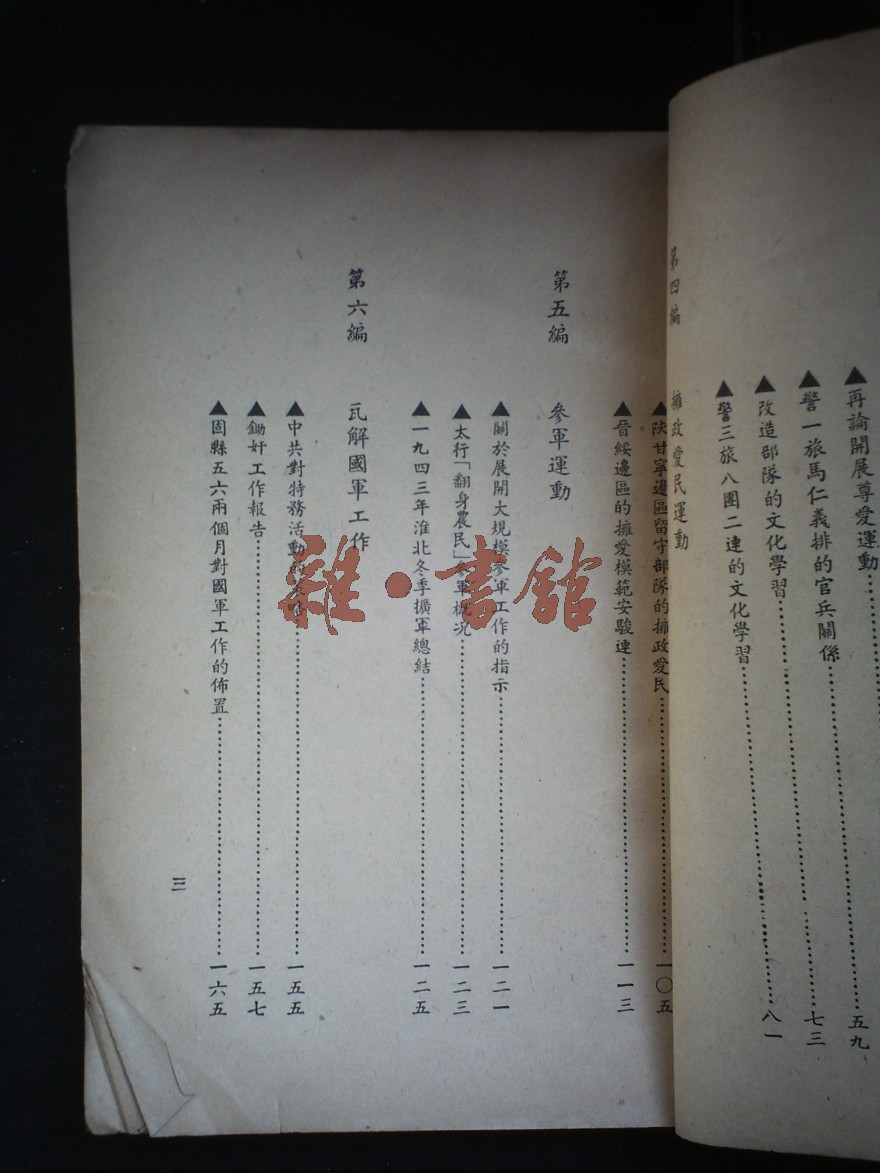 ▲再論開展尊愛運動……五九
▲警一旅馬仁義排的官兵關係……七三
▲改造部隊的文化學習……八一
▲警三旅八團二連的文化學習……
第四編 擁政愛民運動
▲陝甘寧邊區留守部隊的擁政愛民……一〇五
▲晉綏邊區的擁愛模範安駿連……一一三
第五編 參軍運動
▲關於展開大規模參軍工作的指示……一二一
▲太行「翻身農民」參軍概況……一二三
▲一九四三年淮北冬季擴軍總結……一二五
第六編 瓦解國軍工作
▲中共對特務活動的……一五五
▲鋤奸工作報告……一五七
▲固縣五六兩個月對國軍工作的佈置……一六五
三
雜·書館